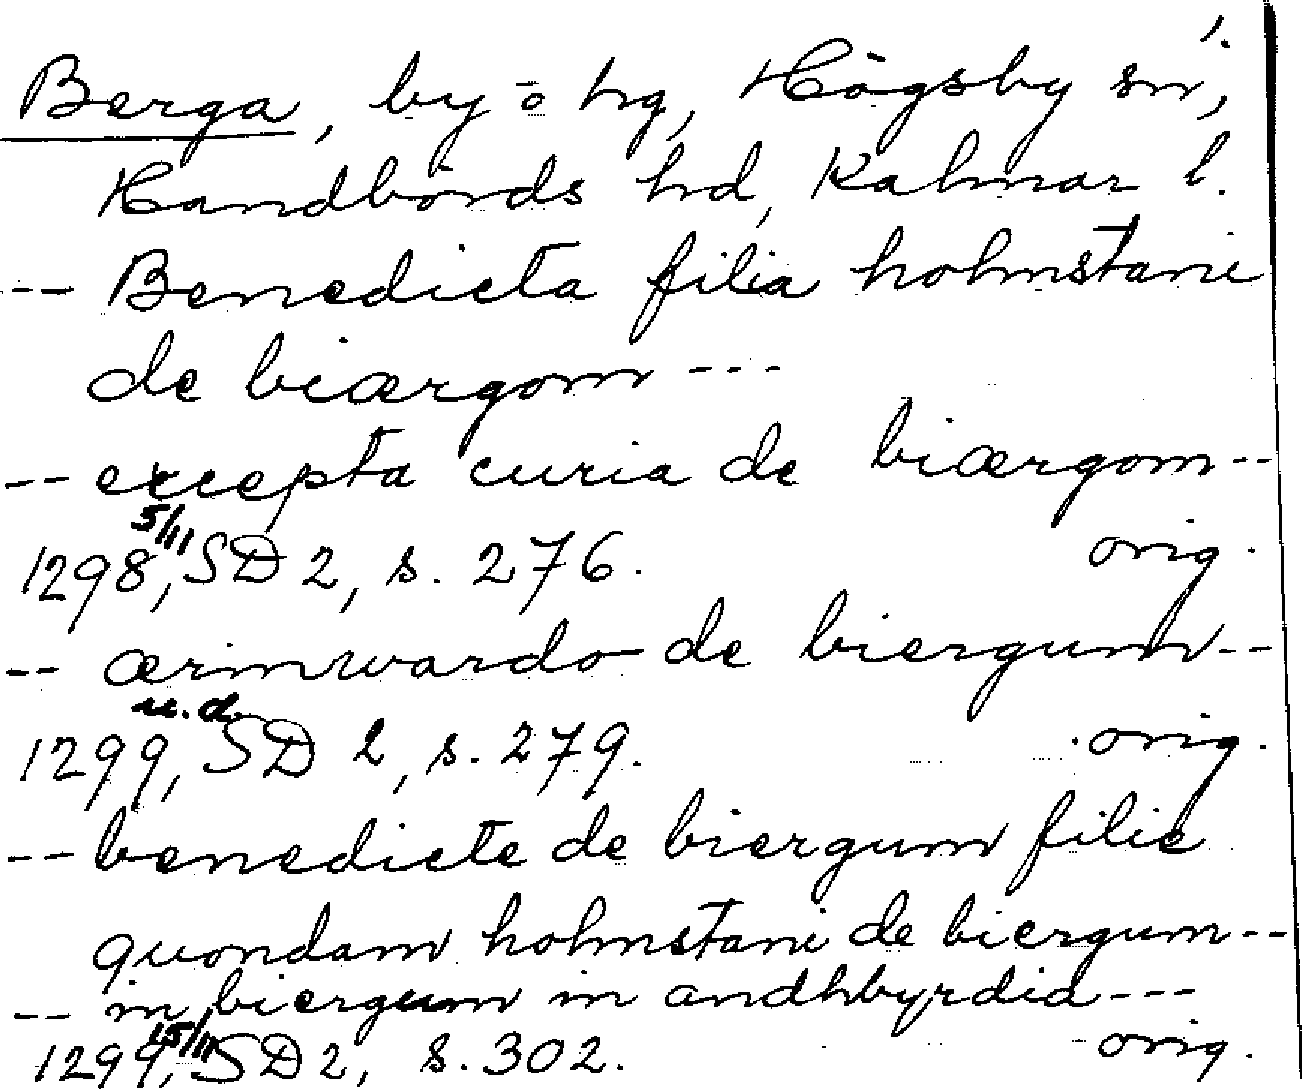 1.
Berga, by o hg, Högsby sn,
Handbörds hd, Kalmar l.
-- Benedicta filia holmstani
de biærgom ---
-- excepta curia de biærgom --
1298 5/11, SD 2, s. 276. orig.
-- ærinwardo de biergum --
1299 u.d., SD 2, s. 279. orig.
-- benedicte de biergum filie
quondam holmstani de biergum --
-- in biergum in andhbyrdia ---
1299 15/11, SD 2, s. 302. orig.